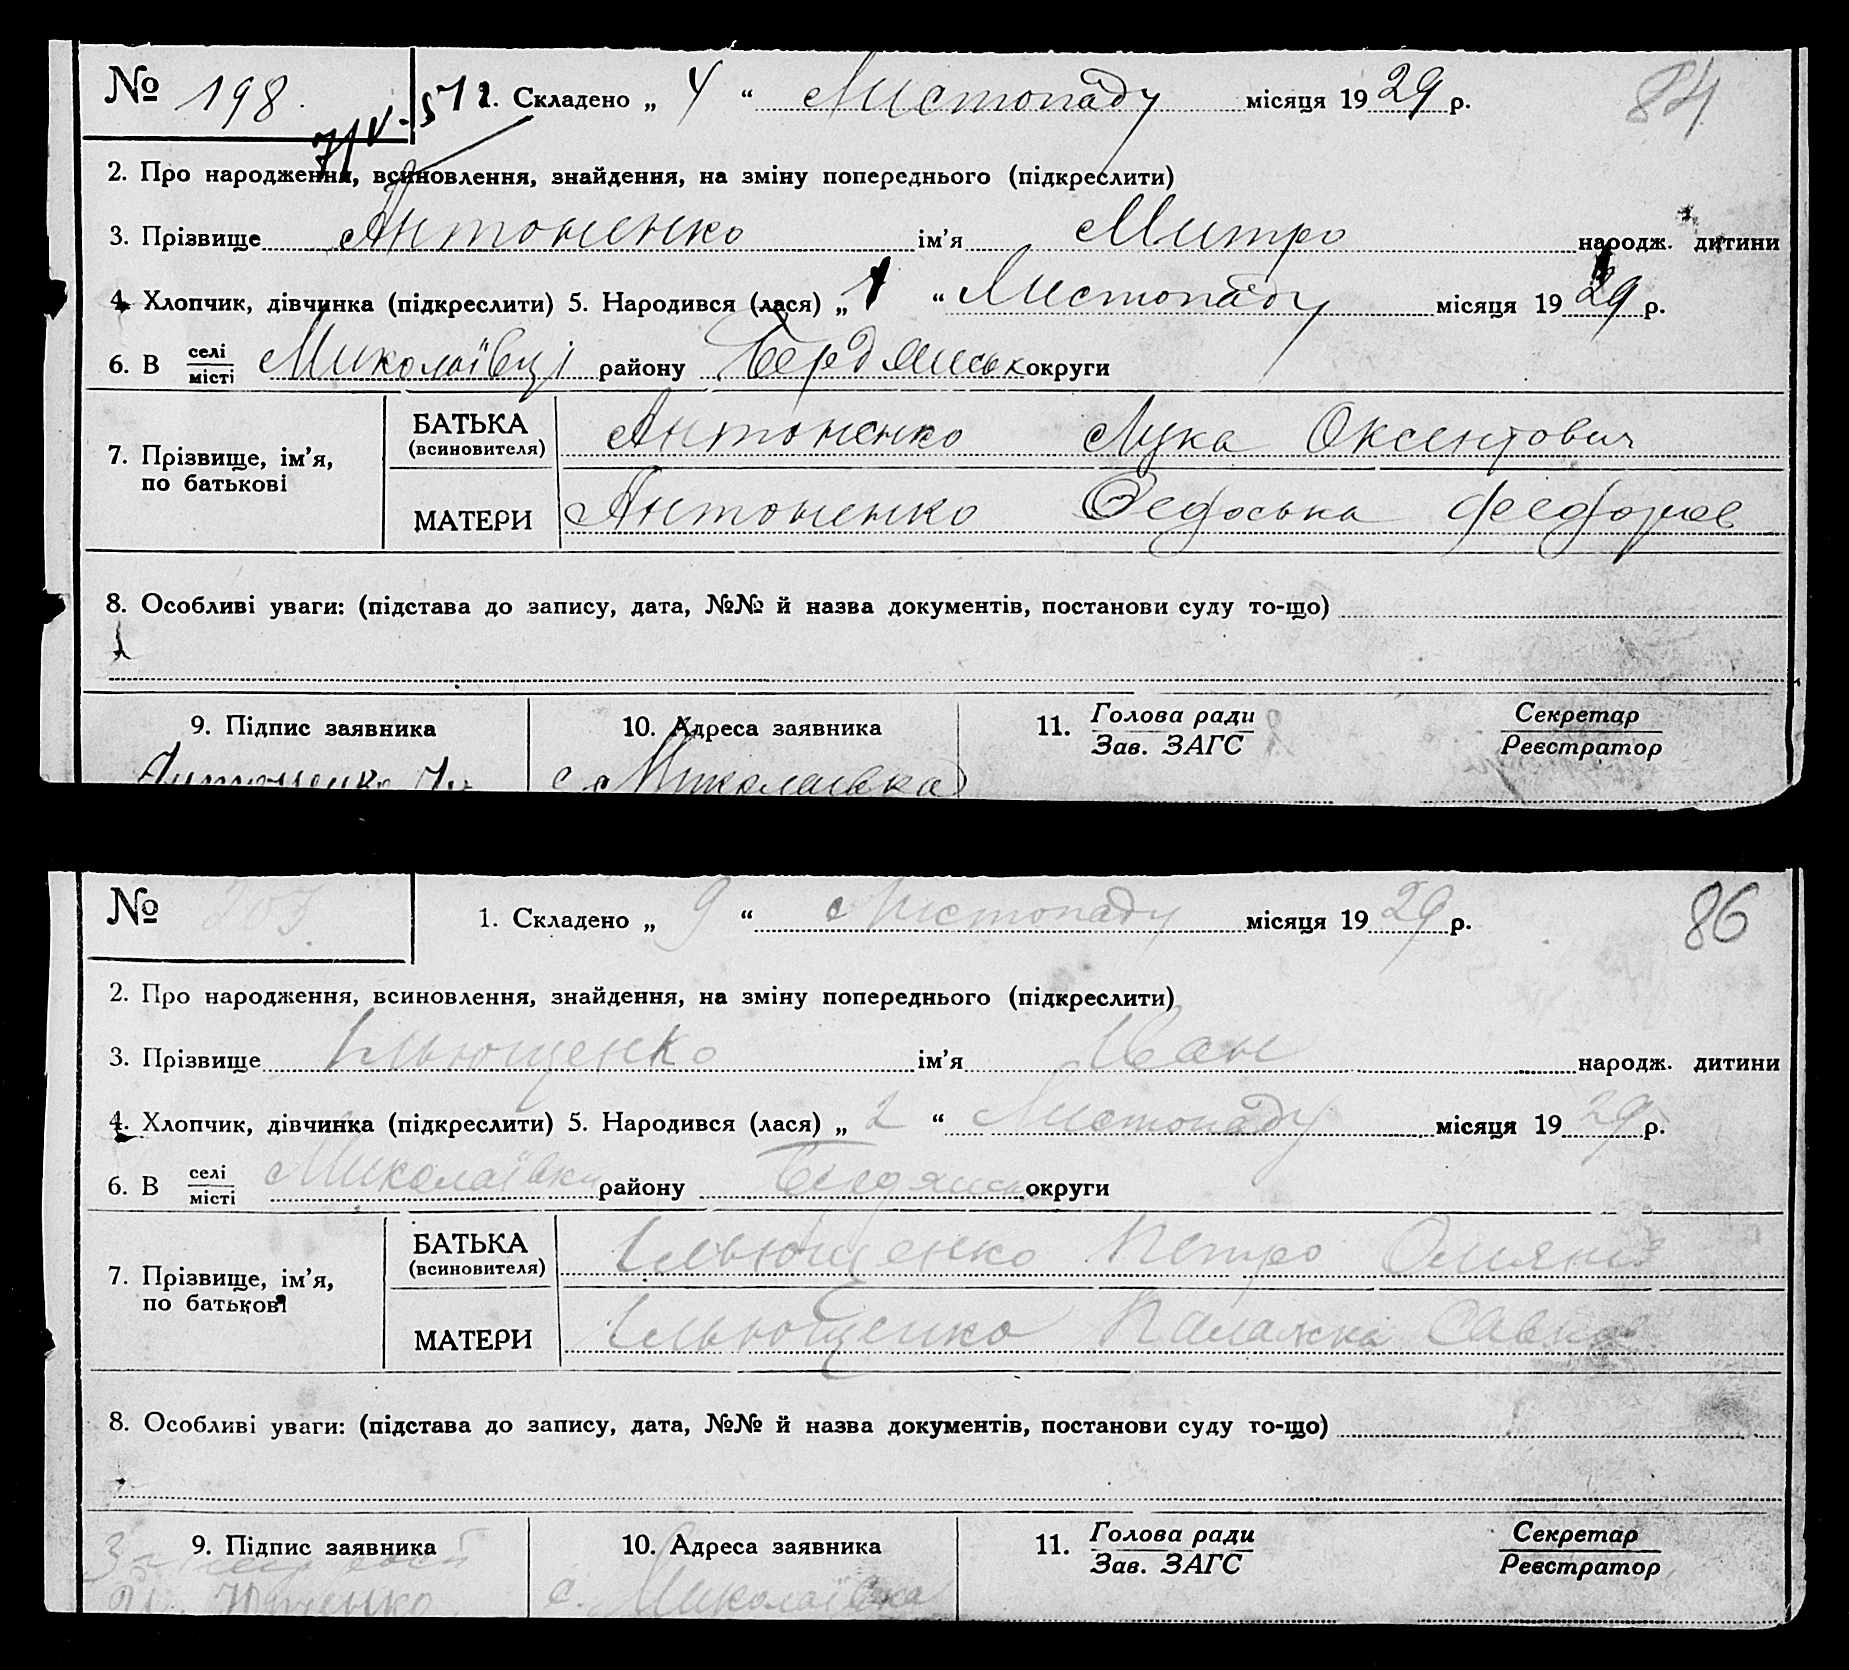 № 198. 1. Складено „ 4 “ Листопаду місяця 1929 р. 84
2. Про народження, всиновлення, знайдення, на зміну попереднього (підкреслити)
3. Прізвище Антоненко ім’я Митро народж. дитини
4. Хлопчик, дівчинка (підкреслити) 5. Народився (лася) „ 1 “ Листопаду місяця 1929 р.
6. В селі/місті Миколаївці району Бердянськ округи
7. Прізвище, ім’я, по батькові
БАТЬКА (всиновителя) Антоненко Лука Оксентович
МАТЕРИ Антоненко Федоська
8. Особливі уваги: (підстава до запису, дата, №№ й назва документів, постанови суду то-що)
9. Підпис заявника 10. Адреса заявника 11. Голова ради/Зав. ЗАГС Секретар/Реєстратор
Антоненко с. Миколаївка
№ 203. 1. Складено „ 9 “ Листопаду місяця 1929 р. 86
2. Про народження, всиновлення, знайдення, на зміну попереднього (підкреслити)
3. Прізвище Ільющенко ім’я Іван народж. дитини
4. Хлопчик, дівчинка (підкреслити) 5. Народився (лася) „ 2 “ Листопаду місяця 1929 р.
6. В селі/місті Миколаївки району Бердянськ округи
7. Прізвище, ім’я, по батькові
БАТЬКА (всиновителя) Ільющенко Петро
МАТЕРИ Ільющенко Палажка Савков
8. Особливі уваги: (підстава до запису, дата, №№ й назва документів, постанови суду то-що)
9. Підпис заявника 10. Адреса заявника 11. Голова ради/Зав. ЗАГС Секретар/Реєстратор
с. Миколаївка